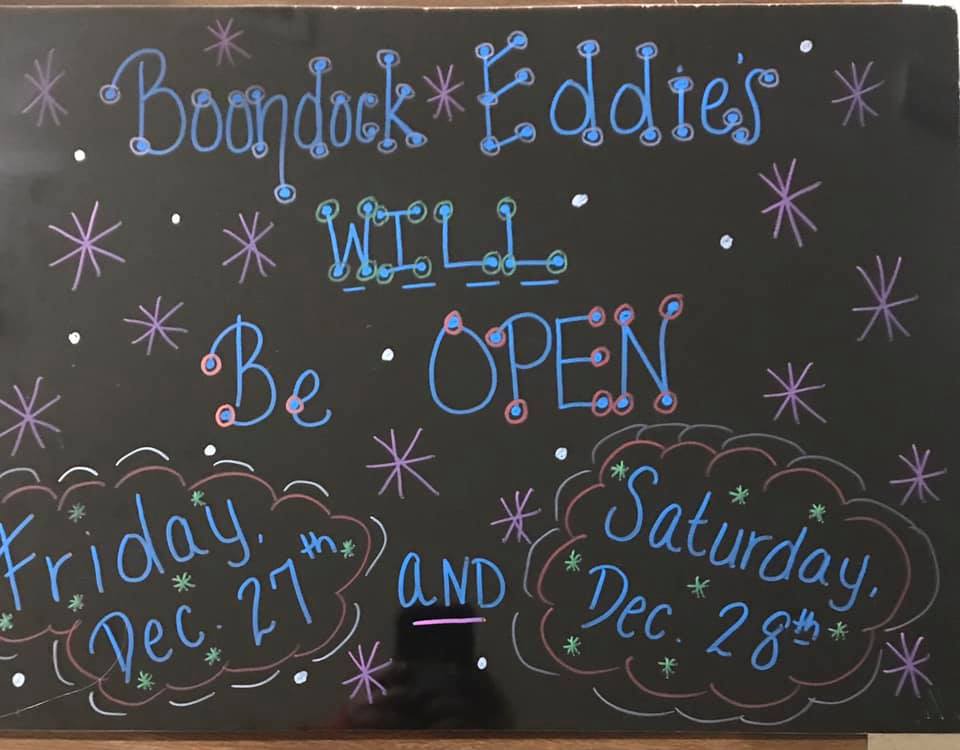 Boondock Eddie's
WILL
Be OPEN
Friday,
Dec. 27th
AND
Saturday,
Dec. 28th